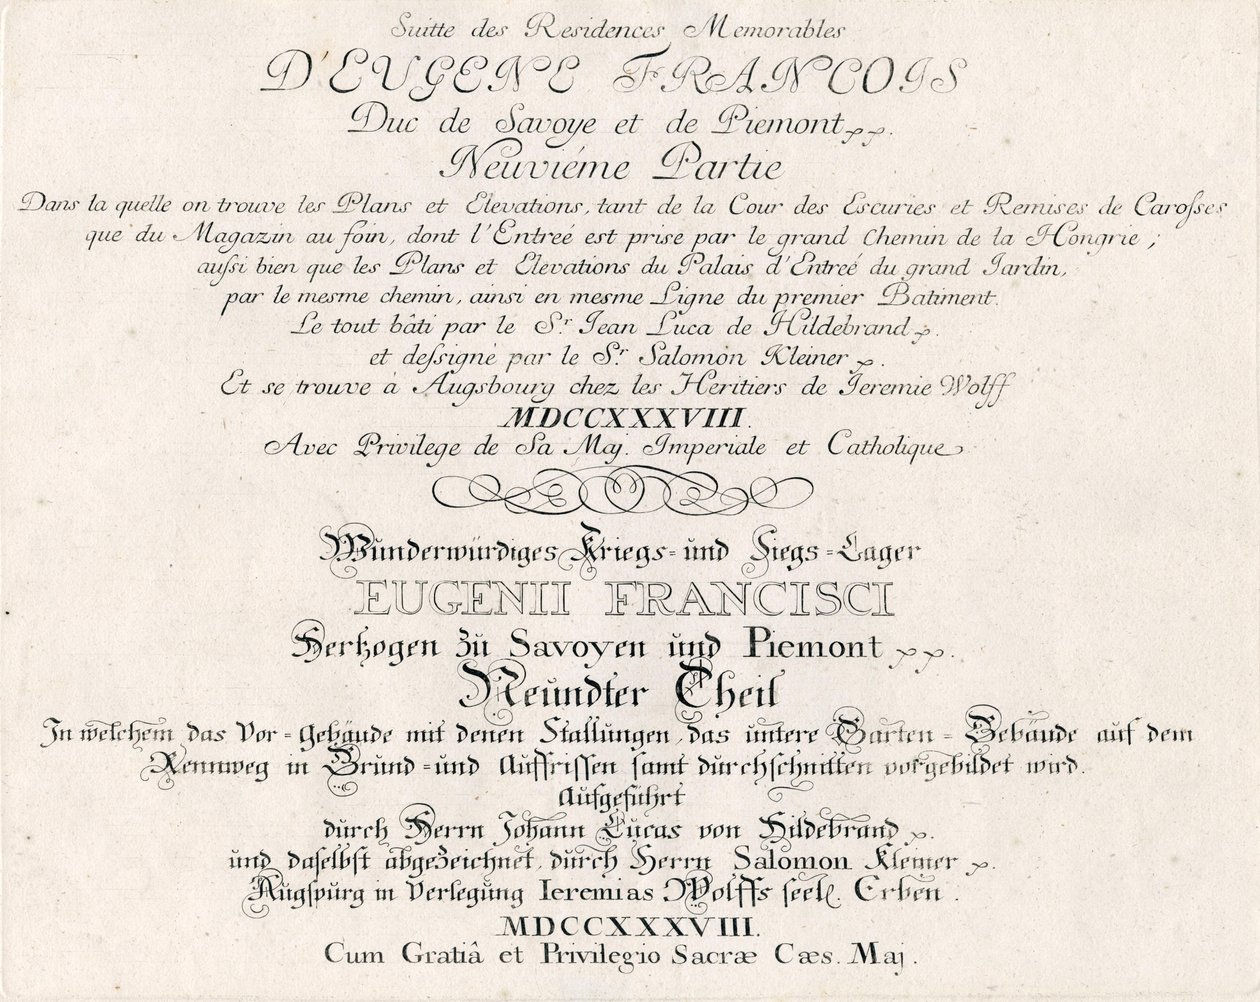 Suitte des Residences Memorables
D'EUGENE FRANCOIS
Duc de Savoye et de Piemont
Neuviéme Partie
Dans la quelle on trouve les Plans et Elevations, tant de la Cour des Escuries et Remises de Carosses
que du Magazin au foin, dont l'Entreé est prise par le grand Chemin de la Hongrie;
aussi bien que les Plans et Elevations du Palais d'Entreé du grand Jardin,
par le mesme chemin, ainsi en mesme Ligne du premier Batiment.
Le tout bâti par le Sr. Jean Luca de Hildebrand
et dessigné par le Sr. Salomon Kleiner
Et se trouve à Augsbourg chez les Heritiers de Jeremie Wolff
MDCCXXXVIII.
Avec Privilege de Sa Maj. Imperiale et Catholique
Wunderwürdiges Kriegs- und Siegs-Lager
EUGENII FRANCISCI
Hertzogen zü Savoyen und Piemont
Neundter Theil
In welchem das Vor-Gebäude mit denen Stallungen, das untere Garten-Gebäude auf dem
Rennweg in Grund- und Auffrissen samt durchschnitten vorgebildet wird.
Aufgeführt
durch Herrn Johann Lucas von Hildebrand
und daselbst abgezeichnet, durch Herrn Salomon Kleiner
Augspurg in Verlegung Ieremias Wolffs seel. Erben.
MDCCXXXVIII.
Cum Gratiâ et Privilegio Sacræ Cæs. Maj.